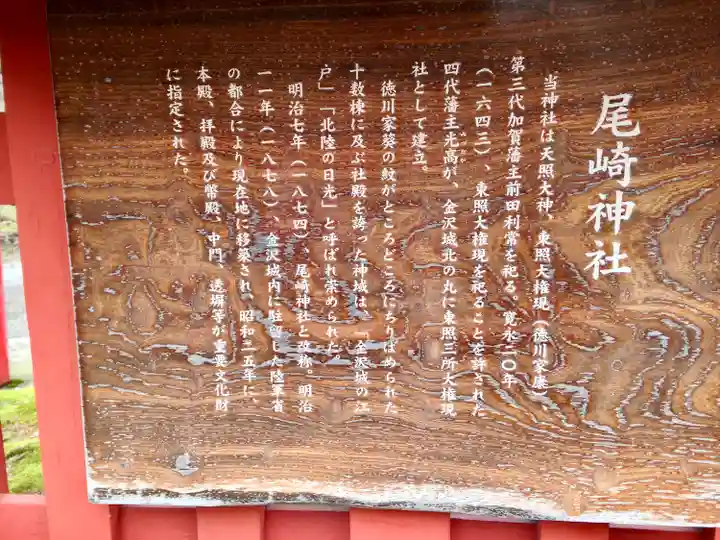 尾崎神社
当神社は天照大神、東照大権現（徳川家康）、
第三代加賀藩主前田利常を祀る。寛永二〇年
（一六四三）、東照大権現を祀ることを許された
四代藩主光高が、金沢城北の丸に東照三所大権現
社として建立。
徳川家葵の紋がところどころにちりばめられた
十数棟に及ぶ社殿を誇った神域は、「金沢城の江
戸」「北陸の日光」と呼ばれ崇められた。
明治七年（一八七四）、尾崎神社と改称。明治
一一年（一八七八）、金沢城内に駐留した陸軍省
の都合により現在地に移築され、昭和二五年に、
本殿、拝殿及び幣殿、中門、透塀等が重要文化財
に指定された。